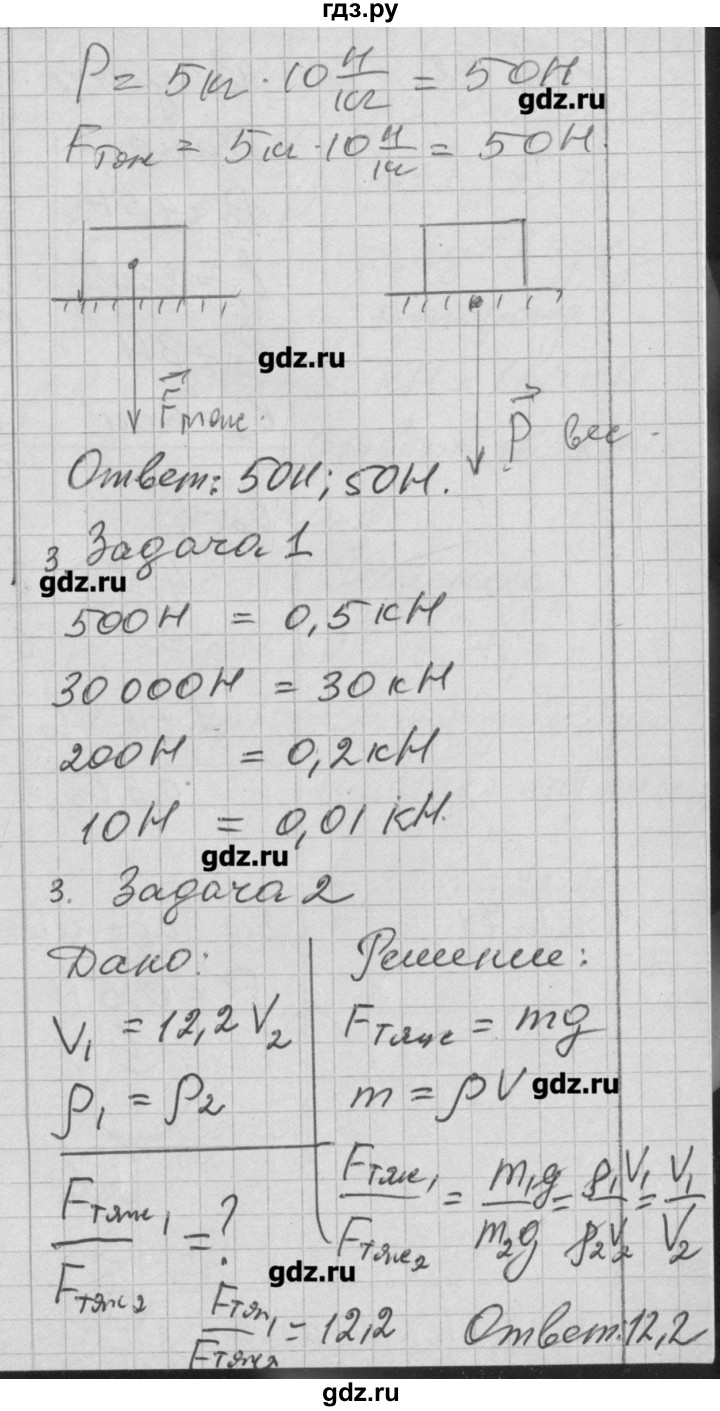 гдз.ру
P = 5кг · 10 Н/кг = 50Н
gdz.ru
Fтяж = 5кг · 10 Н/кг = 50Н.
gdz.ru
Fтяж.
P вес.
Ответ: 50Н; 50Н.
3 Задача 1
gdz.ru
500Н = 0,5 кН
30 000Н = 30 кН
200Н = 0,2 кН
10Н = 0,01 кН.
gdz.ru
3. Задача 2
Дано: Решение:
V₁ = 12,2 V₂ Fтяж = mg
ρ₁ = ρ₂ m = ρV gdz.ru
Fтяж₁/Fтяж₂ = ? Fтяж₁/Fтяж₂ = m₁g/m₂g = ρ₁V₁/ρ₂V₂ = V₁/V₂
gdz.ru
Fтяж₁/Fтяж₂ = 12,2 Ответ: 12,2
gdz.ru